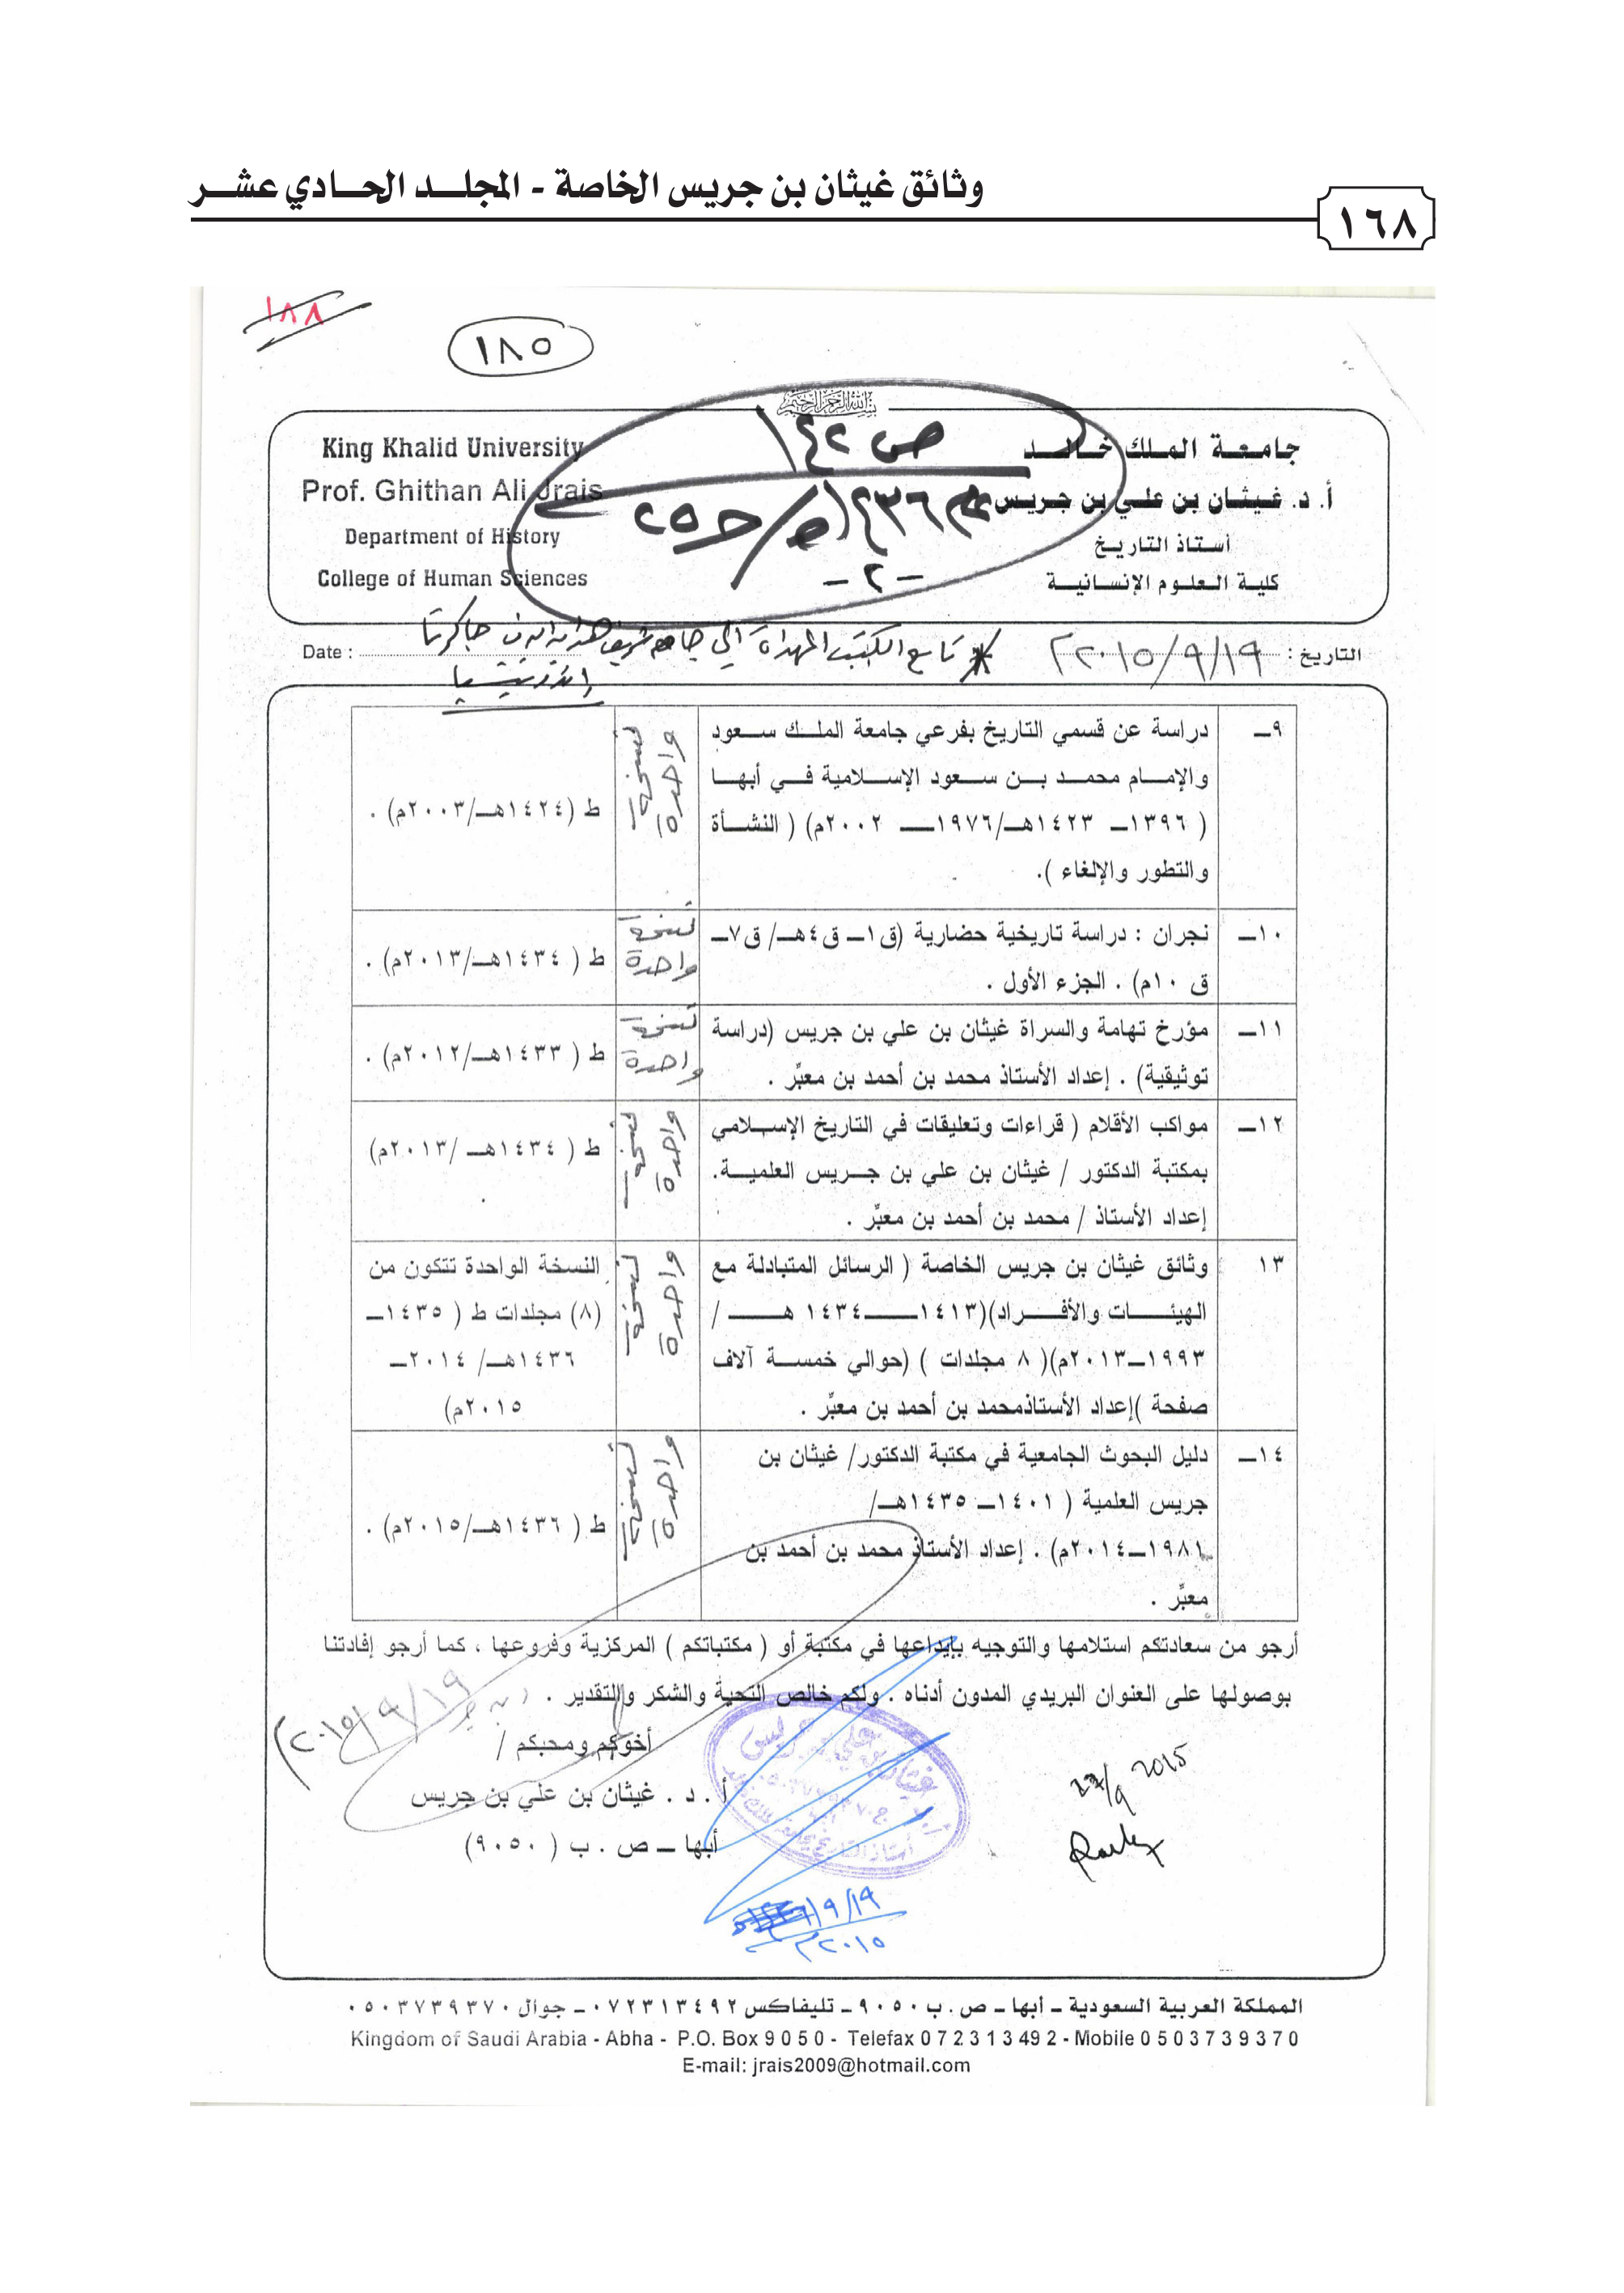 وثائق غيثان بن جريس الخاصة - المجلد الحادي عشر
١٦٨
١٨٨
١٨٥
بسم الله الرحمن الرحيم
جامعة الملك خالد
أ. د. غيثان بن علي بن جريس
أستاذ التاريخ
كلية العلوم الإنسانية
King Khalid University
Prof. Ghithan Ali Jrais
Department of History
College of Human Sciences
ص ١٤٢
١٤٣٦هـ / ج٢٥
-٢-
التاريخ : ٢٠١٥/٩/١٩م
Date :
* تابع الكتب المهداة الى جامعة شريف هداية الله في جاكرتا
اندونيسيا
٩ــ
دراسة عن قسمي التاريخ بفرعي جامعة الملك سعود
والإمام محمد بن سعود الإسلامية في أبها
( ١٣٩٦ــ ١٤٢٣هـ/١٩٧٦ــ ٢٠٠٢م) ( النشأة
والتطور والإلغاء ).
نسخة واحدة
ط (١٤٢٤هـ/٢٠٠٣م) .
١٠ــ
نجران : دراسة تاريخية حضارية (ق١ــ ق٤هـ/ ق٧ــ
ق ١٠م) . الجزء الأول .
نسخة واحدة
ط ( ١٤٣٤هـ/٢٠١٣م) .
١١ــ
مؤرخ تهامة والسراة غيثان بن علي بن جريس (دراسة
توثيقية) . إعداد الأستاذ محمد بن أحمد بن معبِّر .
نسخة واحدة
ط ( ١٤٣٣هـ/٢٠١٢م) .
١٢ــ
مواكب الأقلام ( قراءات وتعليقات في التاريخ الإسلامي
بمكتبة الدكتور / غيثان بن علي بن جريس العلمية.
إعداد الأستاذ / محمد بن أحمد بن معبِّر .
نسخة واحدة
ط ( ١٤٣٤هـ /٢٠١٣م)
.
١٣
وثائق غيثان بن جريس الخاصة ( الرسائل المتبادلة مع
الهيئات والأفراد)(١٤١٣ــ١٤٣٤ هـ /
١٩٩٣ــ٢٠١٣م)( ٨ مجلدات ) (حوالي خمسة آلاف
صفحة )إعداد الأستاذمحمد بن أحمد بن معبِّر .
نسخة واحدة
النسخة الواحدة تتكون من
(٨) مجلدات ط ( ١٤٣٥ــ
١٤٣٦هـ/ ٢٠١٤ــ
٢٠١٥م)
١٤ــ
دليل البحوث الجامعية في مكتبة الدكتور/ غيثان بن
جريس العلمية ( ١٤٠١ــ ١٤٣٥هـ/
١٩٨١ــ٢٠١٤م) . إعداد الأستاذ محمد بن أحمد بن
معبِّر .
نسخة واحدة
ط ( ١٤٣٦هـ/٢٠١٥م) .
أرجو من سعادتكم استلامها والتوجيه بإيداعها في مكتبة أو ( مكتباتكم ) المركزية وفروعها ، كما أرجو إفادتنا
بوصولها على العنوان البريدي المدون أدناه . ولكم خالص التحية والشكر والتقدير .
٢٠١٥/٩/١٩م
أخوكم ومحبكم /
أ . د . غيثان بن علي بن جريس
أبها ــ ص . ب ( ٩٠٥٠)
2015
٩/١٩
٢٠١٥م
المملكة العربية السعودية ــ أبها ــ ص . ب ٩٠٥٠ ــ تليفاكس ٠٧٢٣١٣٤٩٢ ــ جوال ٠٥٠٣٧٣٩٣٧٠
Kingdom of Saudi Arabia - Abha - P.O. Box 9 0 5 0 - Telefax 0 7 2 3 1 3 49 2 - Mobile 0 5 0 3 7 3 9 3 7 0
E-mail: jrais2009@hotmail.com